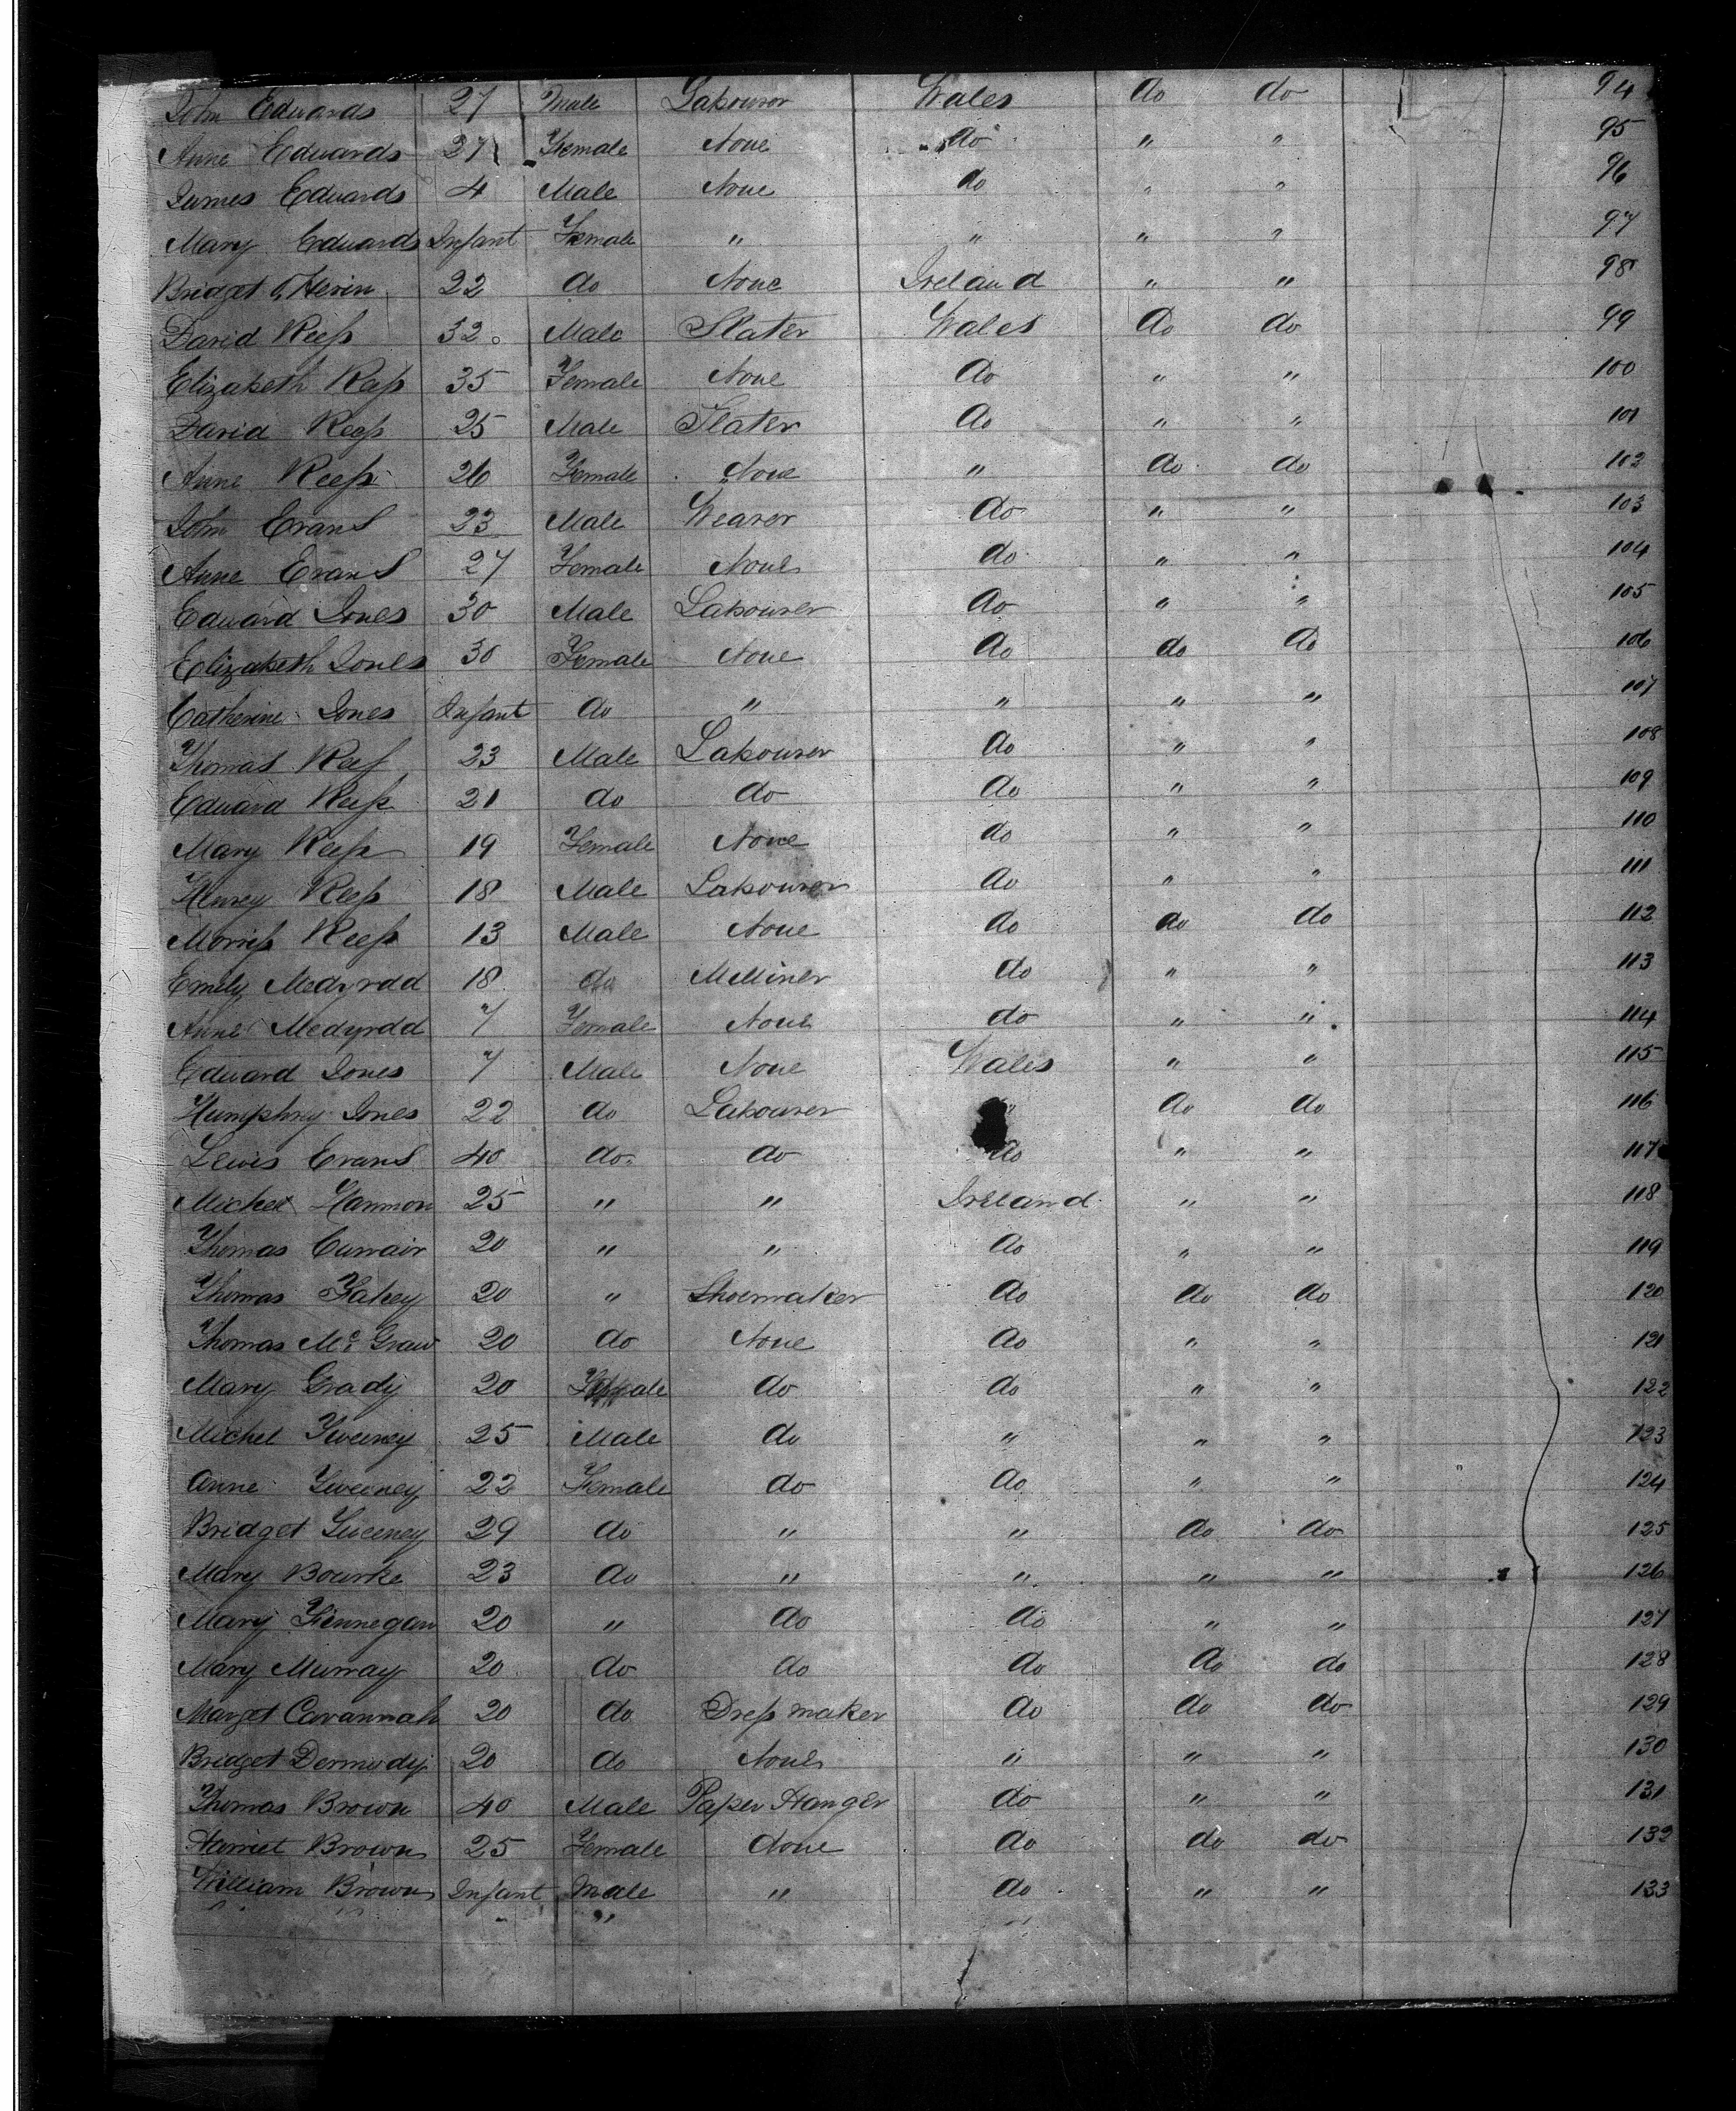 John Edwards 27 Male Labourer Wales do do 94
Anne Edwards 27 Female None do " " 95
James Edwards 4 Male None do " " 96
Mary Edwards Infant Female " " " " 97
Bridget 22 do None Ireland " " 98
David Reess 32 Male Slater Wales do do 99
Elizabeth Reess 35 Female None do " " 100
David Reess 25 Male Slater do " " 101
Anne Reess 26 Female None " do do 102
John Evans 23 Male Weaver do " " 103
Anne Evans 27 Female None do " " 104
Edward Jones 30 Male Labourer do " " 105
Elizabeth Jones 30 Female None do do do 106
Catherine Jones Infant do " " " " 107
Thomas Rees 23 Male Labourer do " " 108
Edward Reess 21 do do do " " 109
Mary Reess 19 Female None do " " 110
Henrey Reess 18 Male Labourer do " " 111
Morriss Reess 13 Male None do do do 112
Emily Medyrdd 18 do Milliner do " " 113
Anne Medyrdd 7 Female None do " " 114
Edward Jones 7 Male None Wales " " 115
Humphry Jones 22 do Labourer " do do 116
Lewis Evans 40 do do do " " 117
Michel Hannon 25 " " Ireland " " 118
Thomas 20 " " do " " 119
Thomas Fahey 20 " Shoemaker do do do 120
Thomas Mc Graw 20 do None do " " 121
Mary Grady 20 Female do do " " 122
Michel Sweeney 25 Male do " " " 123
Anne Sweeney 22 Female do do " " 124
Bridget Sweeney 29 do " " do do 125
Mary Bourke 23 do " " " " 126
Mary Finnegan 20 " do do " " 127
Mary Murray 20 do do do do do 128
Marget Cavannah 20 do Dress maker do do do 129
Bridget Dermudy 20 do None " " " 130
Thomas Brown 40 Male Paper Hanger do " " 131
Harriet Brown 25 Female None do do do 132
William Brown Infant Male " do " " 133